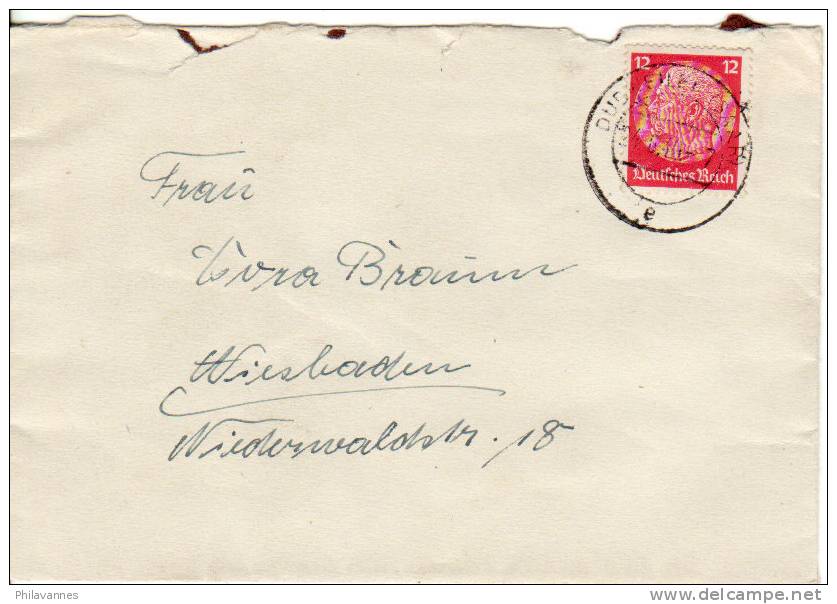 12 12
Deutsches Reich
e
Frau
Braun
Wiesbaden
Niederwaldstr. 18
Philavannes
delcampe.net